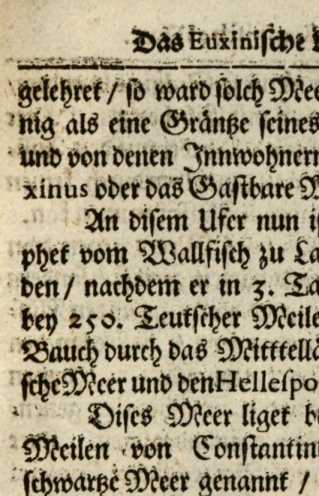 Das Euxinische
gelehret / so ward solch Mee
nig als eine Gräntze seines
und von denen Innwohnern
xinus oder das Gastbare M
An disem Ufer nun i
phet vom Wallfisch zu La
den / nachdem er in 3. Ta
bey 250. Teutscher Meile
Bauch durch das Mitttellä
sche Meer und den Hellespo
Dises Meer liget b
Meilen von Constantin
schwartze Meer genannt /